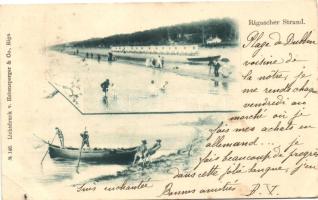 Rigascher Strand.
№ 146. Lichtdruck v. Hebensperger & Co., Riga
Plage de Dubbeln
voisine de
la nôtre, je
me rends chaque
vendredi au
marché où je
fais mes achats en
allemand... je
fais beaucoup de progrès
dans cette jolie langue, j'en
suis enchantée
Bonnes amitiés